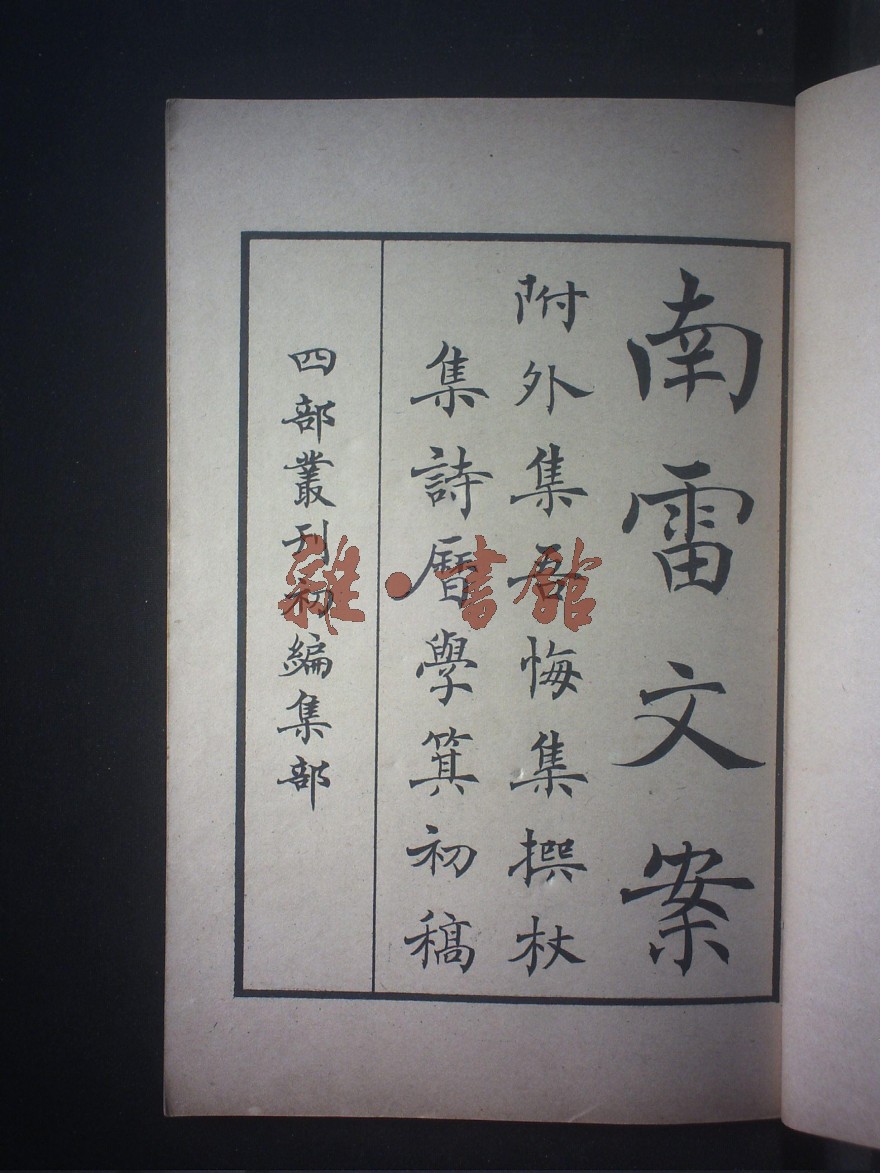 南雷文案
附外集吾悔集撰杖
集詩曆學箕初稿
四部叢刊初編集部
雜·書館